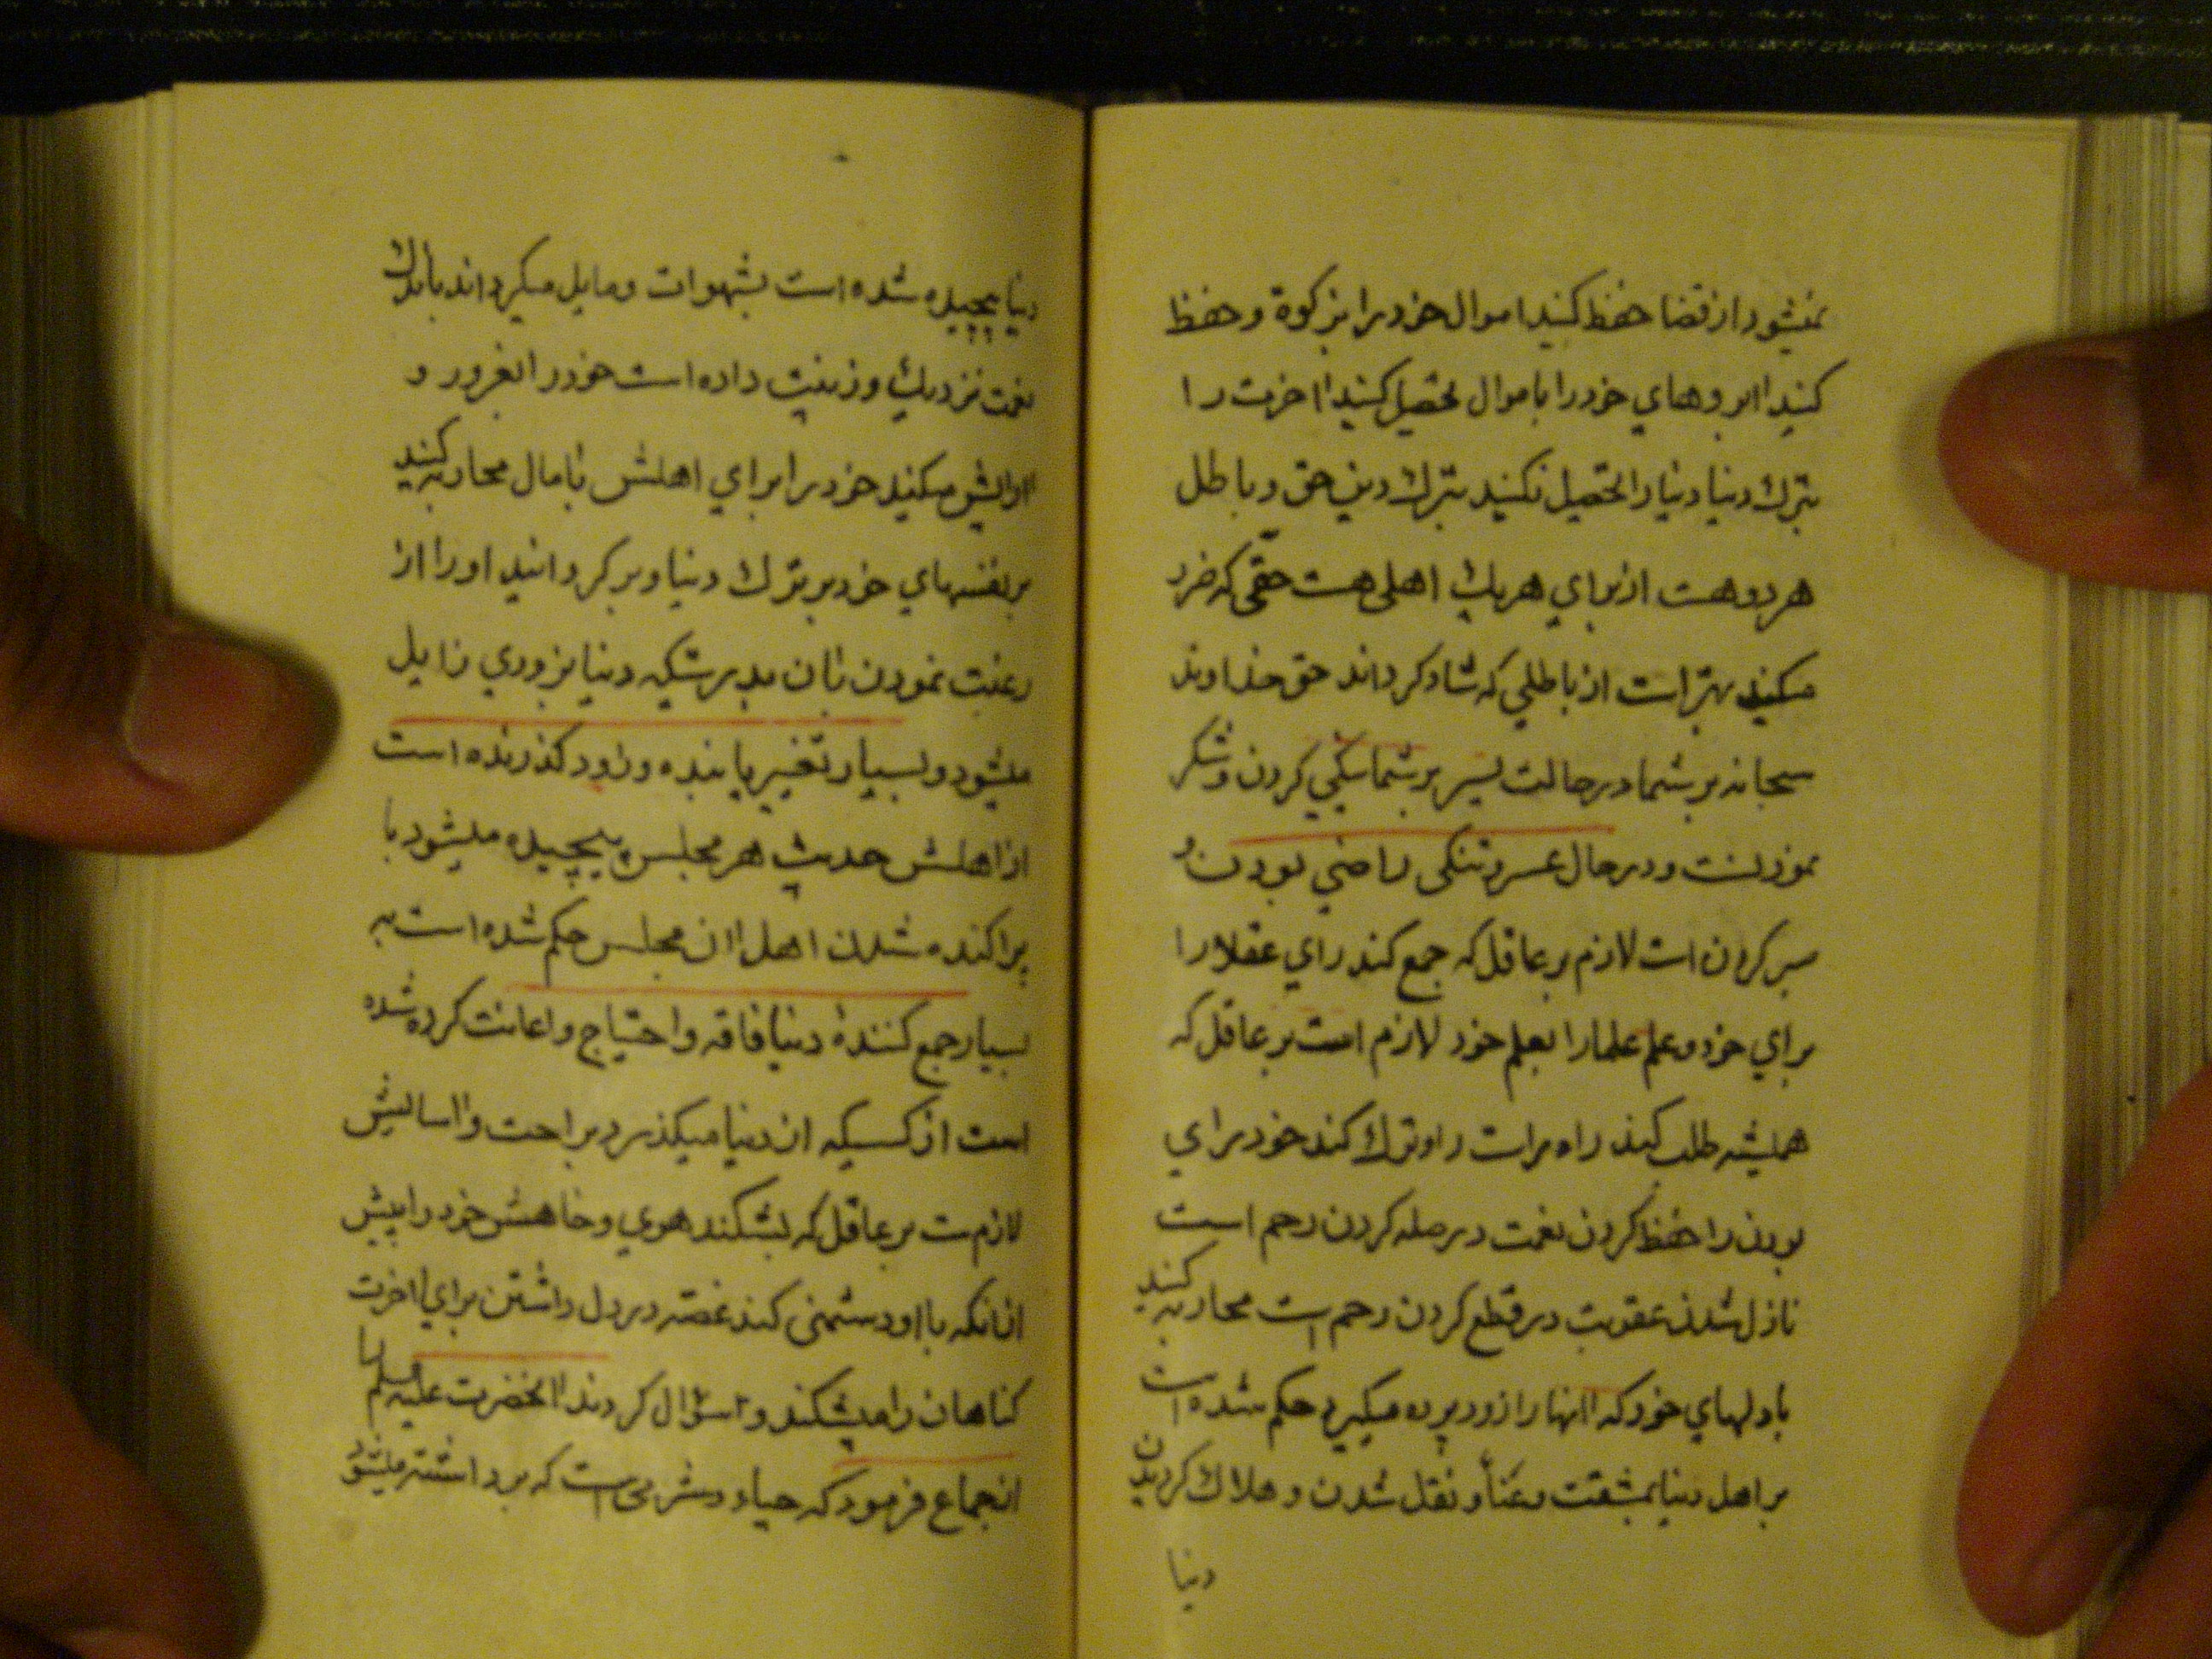 نمیشود از قضا حفظ کنید اموال خود را بزکوة و حفظ
کنید اابروهای خود را باموال تحصیل کنید ااخرت را
بترك دنیا دنیا را تحصیل نکنید بترك دین حق و باطل
هر دو هست از برای هر یك اهلی هست حقی که ضرر
میکند بهتر است از باطلی که شاد کرداند حق خداوند
سبحانه بر شما در حالت یسر بر شما نیکی کردن و شکر
نمودنست و در حال عسر و تنکی راضی بودن و
صبر کردن است لازم بر عاقل که جمع کند رای عقلا را
برای خود و علم علما را بعلم خود لازم است بر عاقل که
همیشه طلب کند راه راست را و ترك کند خود رای
بودن را حفظ کردن نعمت در صله کردن رحم است
نازل شدن عقوبت در قطع کردن رحم است محاربه کنید
با دلهای خود که اانها را زود پرده میکیرد حکم شده است
بر اهل دنیا بمشقت و عنا و نقل شدن و هلاك کردیدن
دنیا
دنیا پیچیده شده است بشهوات و مایل میکرداند باندك
نعمت نزدیك و زینت داده است خود را بغرور و
اارایش میکند خود را برای اهلش باامال محاربه کنید
بر نفسهای خود بر ترك دنیا و بر کردانید او را از
رغبت نمودن باان بدرستیکه دنیا بزودی زایل
میشود و بسیار تغییر یابنده و زود کذرنده است
از اهلش حدیث هر مجلس پیچیده میشود با
پراکنده شدن اهل اان مجلس حکم شده است به
بسیار جمع کنندۀ دنیا فاقه و احتیاج و اعانت کرده شده
است از کسیکه از دنیا میکذرد براحت و ااسایش
لازمست بر عاقل که بشکند هوی و خاهش خود را پیش
از اانکه با او دشمنی کند غصه در دل داشتن برای ااخرت
کناهان را میشکند و سؤال کردند ااحضرت علیه
از جماع فرمود که حیاء و شرمی است که برداشته میشود